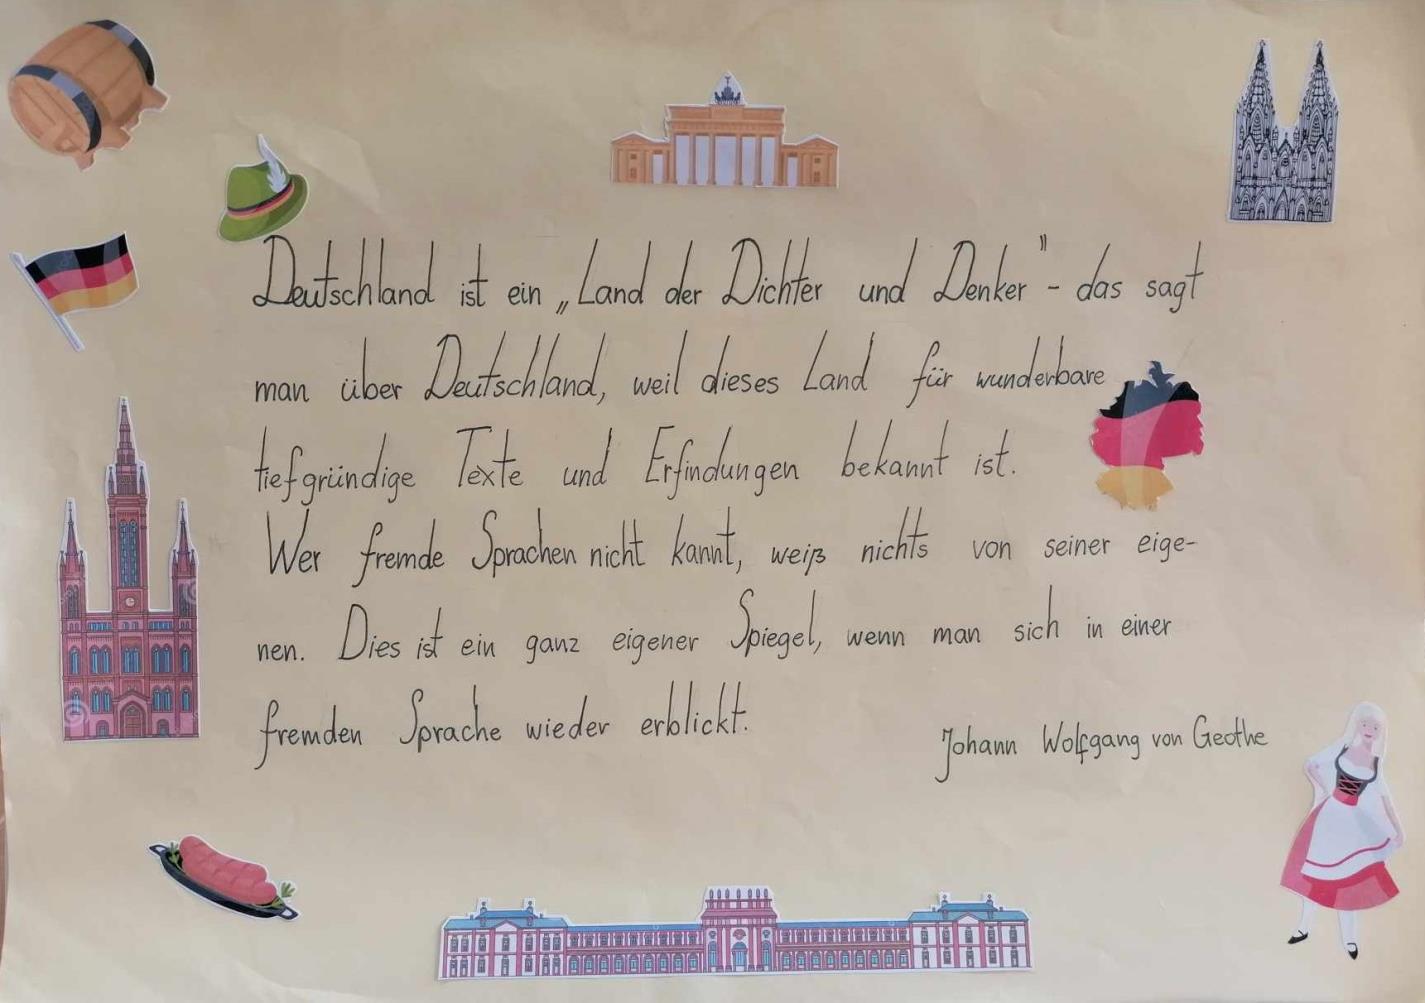 Deutschland ist ein „Land der Dichter und Denker" - das sagt
man über Deutschland, weil dieses Land für wunderbare
tiefgründige Texte und Erfindungen bekannt ist.
Wer fremde Sprachen nicht kannt, weiß nichts von seiner eige-
nen. Dies ist ein ganz eigener Spiegel, wenn man sich in einer
fremden Sprache wieder erblickt.
Johann Wolfgang von Geothe